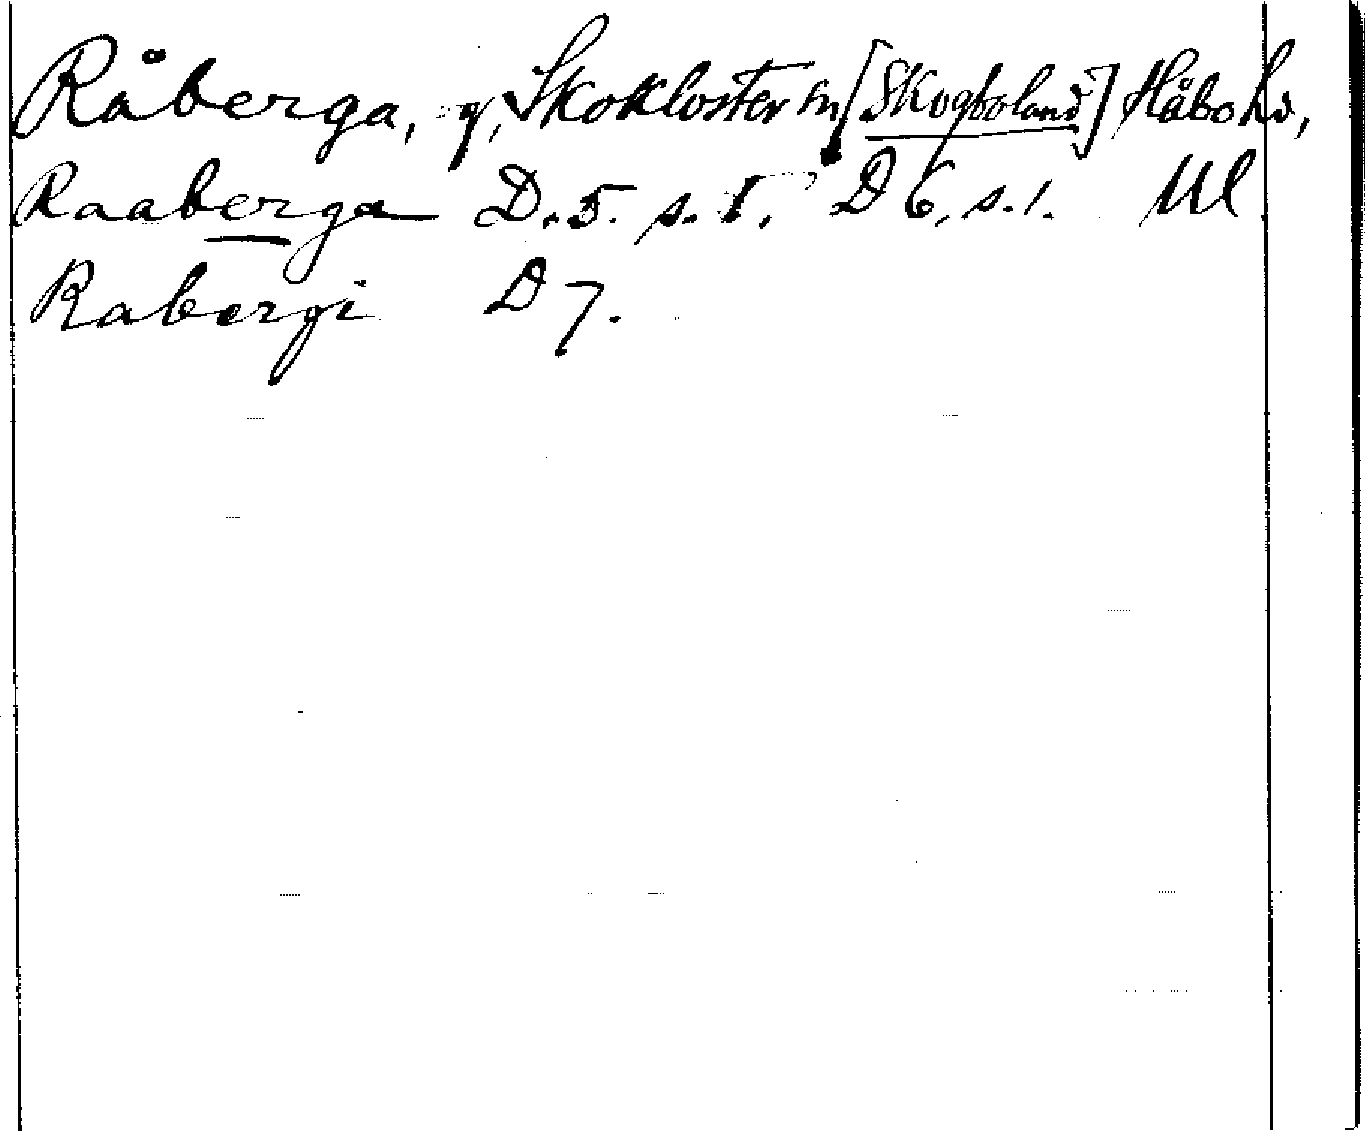 Råberga, g, Skokloster sn [Skogboland] Håbo hd,
Raaberga D. 5. s. 1. D 6, s. 1. Ul
Rabergi D 7.